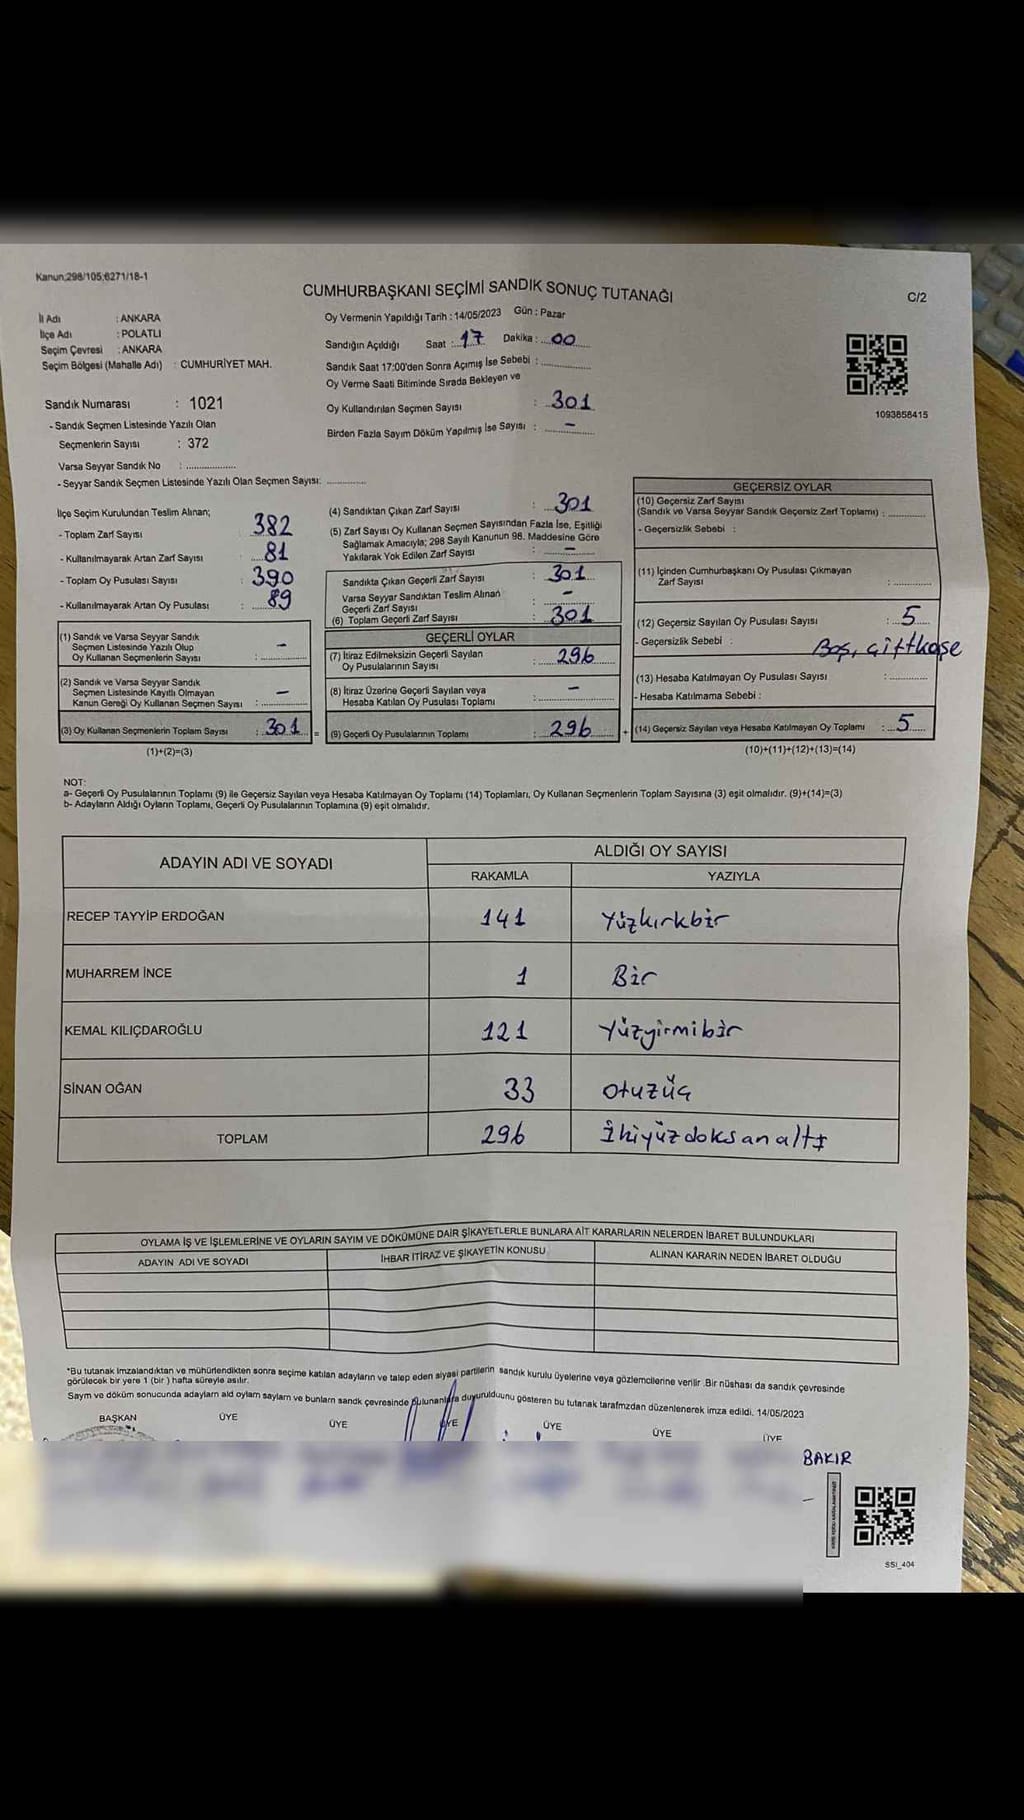 Kanun:298/105;6271/18-1
CUMHURBAŞKANI SEÇİMİ SANDIK SONUÇ TUTANAĞI
C/2
İl Adı : ANKARA
İlçe Adı : POLATLI
Seçim Çevresi : ANKARA
Seçim Bölgesi (Mahalle Adı) : CUMHURİYET MAH.
Oy Vermenin Yapıldığı Tarih : 14/05/2023 Gün : Pazar
Sandığın Açıldığı Saat : 17 Dakika : 00
Sandık Saat 17:00'den Sonra Açımış İse Sebebi :
Oy Verme Saati Bitiminde Sırada Bekleyen ve
Oy Kullandırılan Seçmen Sayısı : 301
Birden Fazla Sayım Döküm Yapılmış İse Sayısı : -
1093858415
Sandık Numarası : 1021
- Sandık Seçmen Listesinde Yazılı Olan
Seçmenlerin Sayısı : 372
Varsa Seyyar Sandık No :
- Seyyar Sandık Seçmen Listesinde Yazılı Olan Seçmen Sayısı:
İlçe Seçim Kurulundan Teslim Alınan;
- Toplam Zarf Sayısı : 382
- Kullanılmayarak Artan Zarf Sayısı : 81
- Toplam Oy Pusulası Sayısı : 390
- Kullanılmayarak Artan Oy Pusulası : 89
(1) Sandık ve Varsa Seyyar Sandık
Seçmen Listesinde Yazılı Olup
Oy Kullanan Seçmenlerin Sayısı : -
(2) Sandık ve Varsa Seyyar Sandık
Seçmen Listesinde Kayıtlı Olmayan
Kanun Gereği Oy Kullanan Seçmen Sayısı : -
(3) Oy Kullanan Seçmenlerin Toplam Sayısı : 301 =
(1)+(2)=(3)
(4) Sandıktan Çıkan Zarf Sayısı : 301
(5) Zarf Sayısı Oy Kullanan Seçmen Sayısından Fazla İse, Eşitliği
Sağlamak Amacıyla; 298 Sayılı Kanunun 98. Maddesine Göre
Yakılarak Yok Edilen Zarf Sayısı : -
Sandıkta Çıkan Geçerli Zarf Sayısı : 301
Varsa Seyyar Sandıktan Teslim Alınan
Geçerli Zarf Sayısı : -
(6) Toplam Geçerli Zarf Sayısı : 301
GEÇERLİ OYLAR
(7) İtiraz Edilmeksizin Geçerli Sayılan
Oy Pusulalarının Sayısı : 296
(8) İtiraz Üzerine Geçerli Sayılan veya
Hesaba Katılan Oy Pusulası Toplamı : -
(9) Geçerli Oy Pusulalarının Toplamı : 296 +
GEÇERSİZ OYLAR
(10) Geçersiz Zarf Sayısı
(Sandık ve Varsa Seyyar Sandık Geçersiz Zarf Toplamı) :
- Geçersizlik Sebebi :
(11) İçinden Cumhurbaşkanı Oy Pusulası Çıkmayan
Zarf Sayısı :
(12) Geçersiz Sayılan Oy Pusulası Sayısı : 5
- Geçersizlik Sebebi : Boş, çiftkaşe
(13) Hesaba Katılmayan Oy Pusulası Sayısı :
- Hesaba Katılmama Sebebi :
(14) Geçersiz Sayılan veya Hesaba Katılmayan Oy Toplamı : 5
(10)+(11)+(12)+(13)=(14)
NOT:
a- Geçerli Oy Pusulalarının Toplamı (9) ile Geçersiz Sayılan veya Hesaba Katılmayan Oy Toplamı (14) Toplamları, Oy Kullanan Seçmenlerin Toplam Sayısına (3) eşit olmalıdır. (9)+(14)=(3)
b- Adayların Aldığı Oyların Toplamı, Geçerli Oy Pusulalarının Toplamına (9) eşit olmalıdır.
ADAYIN ADI VE SOYADI ALDIĞI OY SAYISI
RAKAMLA YAZIYLA
RECEP TAYYİP ERDOĞAN 141 Yüzkırkbir
MUHARREM İNCE 1 Bir
KEMAL KILIÇDAROĞLU 121 Yüzyirmibir
SİNAN OĞAN 33 Otuzüç
TOPLAM 296 İkiyüzdoksanaltı
OYLAMA İŞ VE İŞLEMLERİNE VE OYLARIN SAYIM VE DÖKÜMÜNE DAİR ŞİKAYETLERLE BUNLARA AİT KARARLARIN NELERDEN İBARET BULUNDUKLARI
ADAYIN ADI VE SOYADI İHBAR İTİRAZ VE ŞİKAYETİN KONUSU ALINAN KARARIN NEDEN İBARET OLDUĞU
*Bu tutanak imzalandıktan ve mühürlendikten sonra seçime katılan adayların ve talep eden siyasi partilerin sandık kurulu üyelerine veya gözlemcilerine verilir .Bir nüshası da sandık çevresinde
görülecek bir yere 1 (bir ) hafta süreyle asılır.
Sayım ve döküm sonucunda adayların ald oyların sayların ve bunların sandk çevresinde bulunanlara duyurulduunu gösteren bu tutanak tarafmzdan düzenlenerek imza edildi. 14/05/2023
BAŞKAN ÜYE ÜYE ÜYE ÜYE ÜYE ÜYE
BAKIR
SSI_404